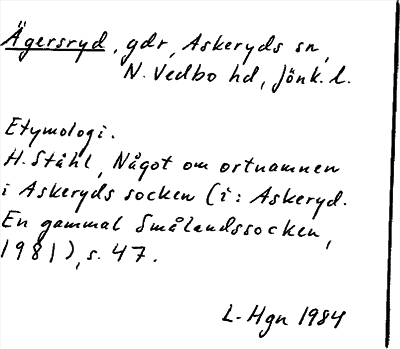 Ägersryd, gdr, Askeryds sn,
N. Vedbo hd, Jönk. l.
Etymologi.
H. Ståhl, Något om ortnamnen
i Askeryds socken (i: Askeryd.
En gammal Smålandssocken,
1981), s. 47.
L-Hgn 1984